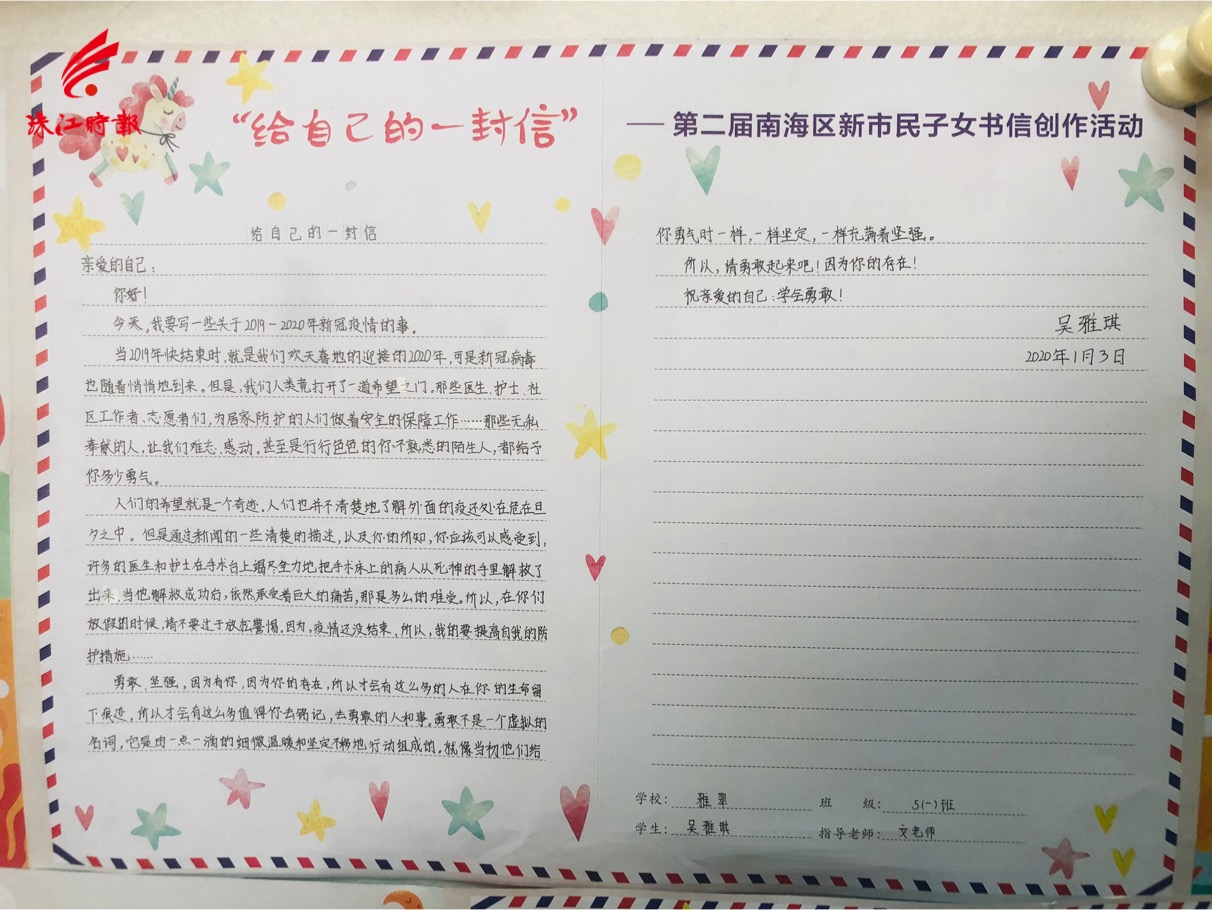 珠江時報
“给自己的一封信”
— 第二届南海区新市民子女书信创作活动
给自己的一封信
亲爱的自己：
你好！
今天，我要写一些关于2019-2020年新冠疫情的事。
当2019年快结束时，就是我们欢天喜地的迎接的2020年，可是新冠病毒
也随着悄悄地到来。但是，我们人类竟打开了一道希望之门。那些医生、护士、社
区工作者、志愿者们，为居家防护的人们做着安全的保障工作……那些无私
奉献的人，让我们难忘、感动。甚至是行行色色的你不熟悉的陌生人，都给予
你多少勇气。
人们的希望就是一个奇迹，人们也并不清楚地了解外面的疫还处在危在旦
夕之中。但是通过新闻的一些清楚的描述，以及你的所知，你应该可以感受到，
许多的医生和护士在手术台上竭尽全力地把手术床上的病人从死神的手里解救了
出来，当他解救成功后，依然承受着巨大的痛苦，那是多么的难受。所以，在你们
放假的时候，请不要过于放松警惕。因为，疫情还没结束，所以，我的要提高自我的防
护措施……
勇敢、坚强，因为有你，因为你的存在，所以才会有这么多的人在你的生命留
下痕迹，所以才会有这么多值得你去铭记，去勇敢的人和事。勇敢不是一个虚拟的
名词，它是由一点一滴的细微温暖和坚定不移地行动组成的。就像当初他们给
你勇气时一样，一样坚定，一样充满着坚强。
所以，请勇敢起来吧！因为你的存在！
祝亲爱的自己：学会勇敢！
吴雅琪
2020年1月3日
学校： 雅翠 班 级： 5(一)班
学生： 吴雅琪 指导老师： 文老师